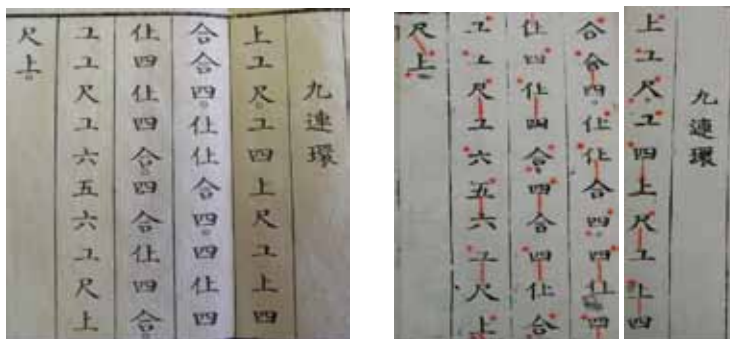 九連環
上工尺工四上尺工上四
合合四仩仩合四四仩四
仩四仩四合四合仩四合
工工尺工六五六工尺上
尺上
九連環
上工尺工四上尺工上四
合合四仩仩合四四仩四
仩四仩四合四合四仩合
工工尺工六五六工尺上
尺上